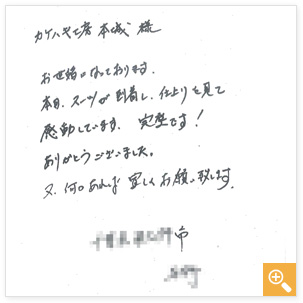 カケハギ工房 本城 様
お世話になっております.
本日. スーツが到着し. 仕上りを見て
感動しています. 完璧です!
ありがとうございました。
又. 何かあれば 宜しくお願い致します.
市